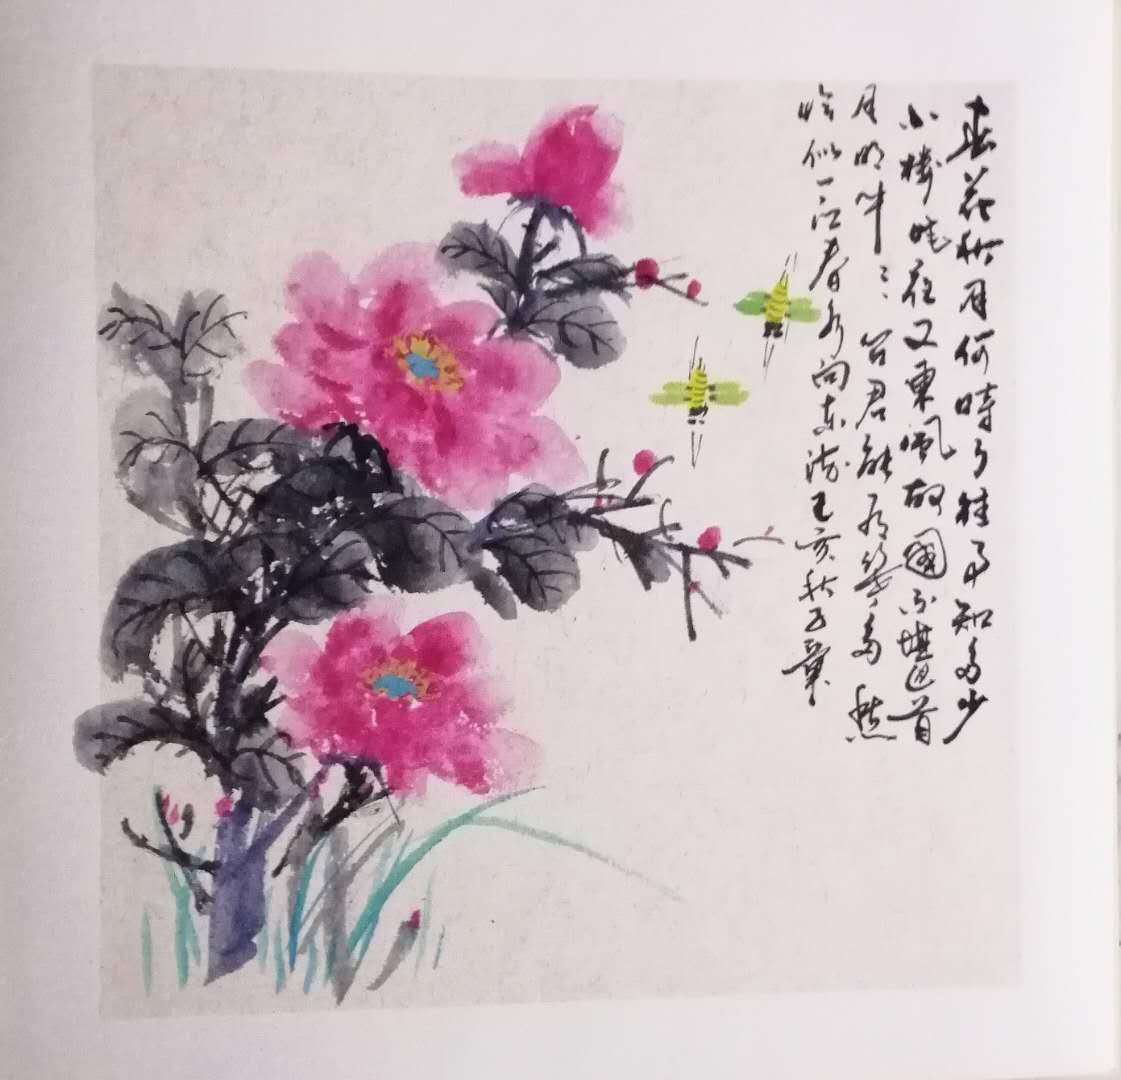 春花秋月何時了往事知多少
小樓昨夜又東風故國不堪回首
月明中問君能有幾多愁
恰似一江春水向東流己亥秋